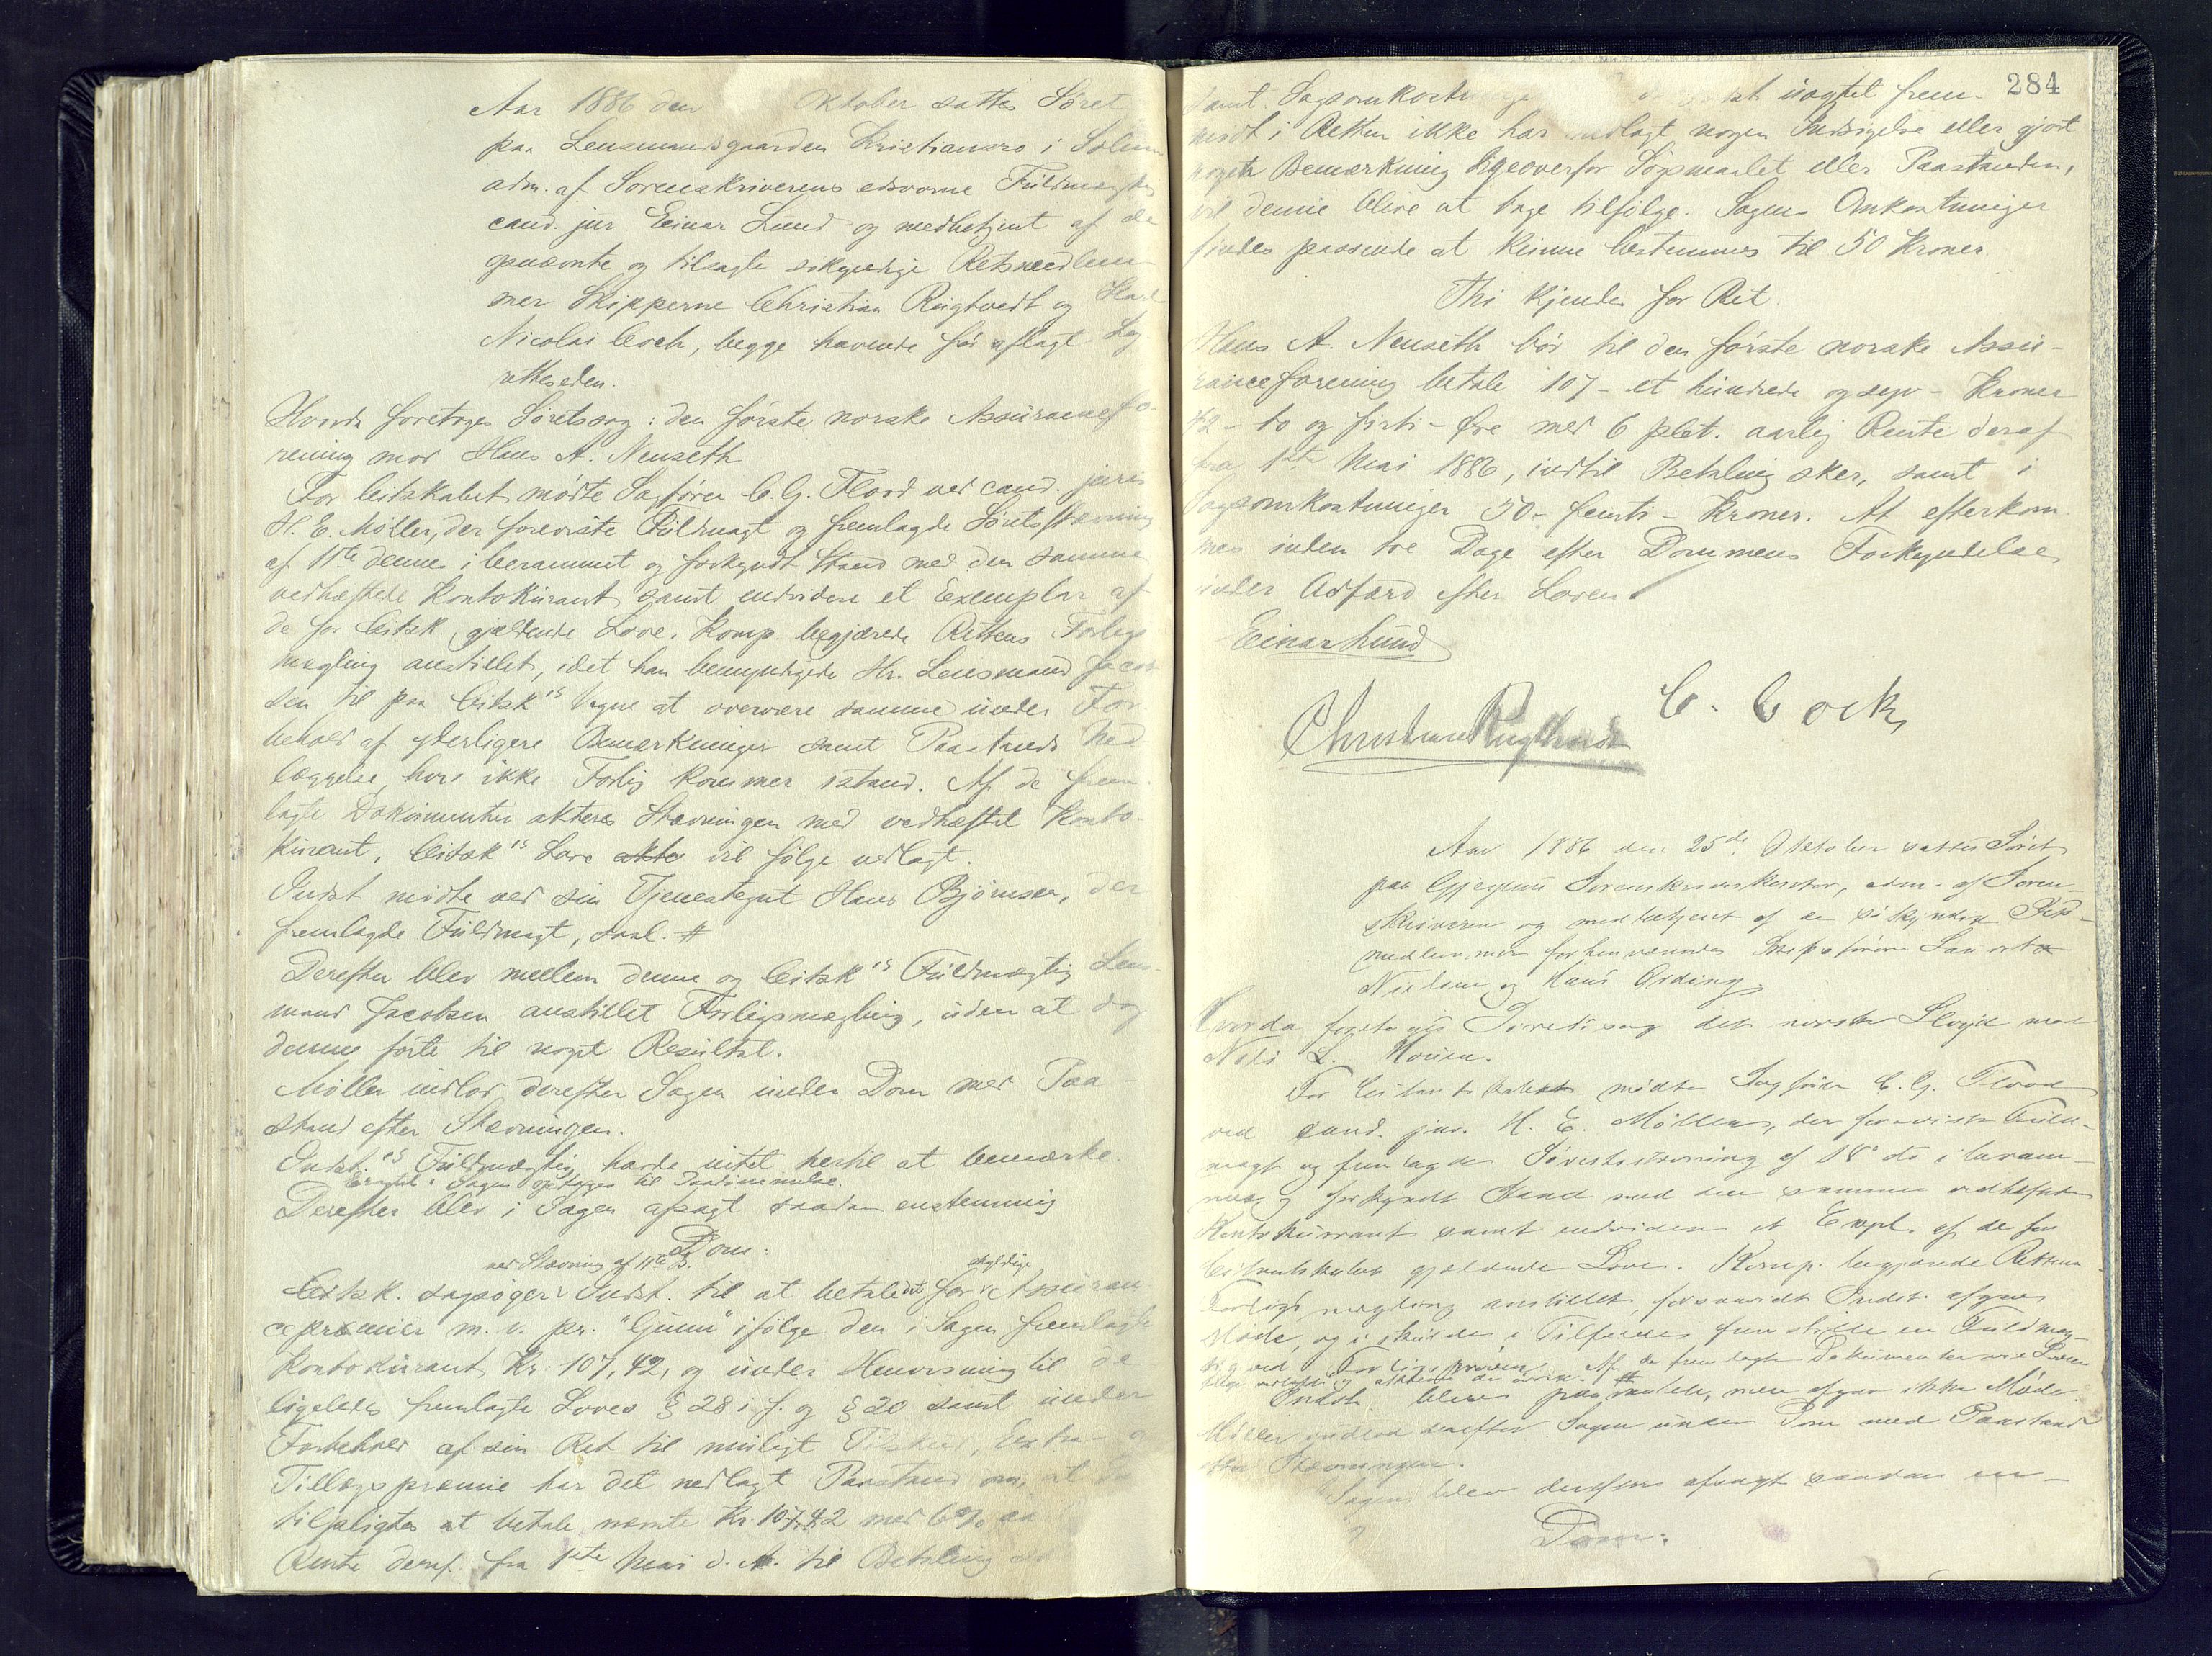 Aar 1886 den Oktober sattes Söret
paa Lensmandsgaarden Kristiansro i Solum
adm. af Sorenskriverens edsvorne Fuldmægtig
cand. jur. Einar Lund og medbetjent af de
opnævnte og tilsagte sökyndige Retsmedlem-
mer Skipperne Christian Rugtvedt og
Nicolai Coch, begge havende før aflagt Lag
retteseden.
Hvorda foretoges Söretssag: den förste norske Assurancefo-
rening mod Hans A. Nenseth
For Citskabet mödte Sagförer C. G. Flood ved cand. juris
H. E. Möller, der foreviste Fuldmagt og fremlagde Söretsstævning
af 11te dennes i berammet og forkyndt Stand med den samme
vedhæftede Kontokurant samt endvidere et Exemplar af
de for Citsk. gjældende Love. Komp. begjærede Rettens Forligs
mægling anstillet, idet han bemyndigede Hr. Lensmand Jacob
sen til paa Citsk's Vegne at overvære samme under For
behold af yderligere Bemærkninger samt Paastands Ned
læggelse, hvis ikke Forlig kommer istand. Af de frem-
lagte Dokumenter akteres Stævningen med vedhæftet Konto-
kurant, Citsk's Love akte vil fölge vedlagt.
Indst. mödte ved sin Tjenestegut Hans Björnsen, der
fremlagde Fuldmagt, saal. #
Derefter blev mellem denne og Citsk's Fuldmægtig Lens-
mand Jacobsen anstillet Forligsmægling, uden at dog
denne förte til noget Resultat.
Möller indlod derefter Sagen under Dom med Paa-
stand efter Stævningen.
Indst.'s Fuldmægtig havde intet hertil at bemærke.
Sagen optoges til Paadömmelse.
Derefter blev i Sagen afsagt saadan enstemmig
Dom:
ved Stævning af 11te ds. skyldige
Citsk. sagsöger Indst. til at betale det for Assuran-
cepræmier m. v. pr. "Gunn" ifölge den i Sagen fremlagte
Kontokurant Kr. 107,42, og under Henvisning til de
ligeledes fremlagte Loves § 28 i. f. og § 20 samt under
Forbehold af sin Ret til muligt Tilskud, Extra- og
Tillægspræmie har det nedlagt Paastand om, at
tilpligtes at betale nævnte Kr. 107,42 med 6%
Rente deraf fra 1ste Mai d. A. til Betaling
284
samt Sagsomkostninger uagtet frem-
mödt i Retten ikke har nedlagt nogen Indsigelse eller gjort
nogen Bemærkning ligeoverfor Sögsmaalet eller Paastanden,
vil denne blive at tage tilfölge. Sagens Omkostninger
findes passende at kunne bestemmes til 50 Kroner.
Thi kjendes for Ret
Hans A. Nenseth bör til den förste norske Assu-
ranceforening betale 107 - et hundrede og syv - Kroner
42 - to og firti - Öre med 6 pCt. aarlig Rente deraf
fra 1ste Mai 1886, indtil Betaling sker, samt i
Sagsomkostninger 50 - femti - Kroner. At efterkom-
mes inden tre Dage efter Dommens Forkyndelse
under Adfærd efter Loven.
Einar Lund
C. Cock,
Christian Rugtvedt
Aar 1886 den 25de Oktober sattes Söret
paa Gjerpens Sorenskriverkontor, adm. af Soren-
skriveren og medbetjent af de sökyndige Rets-
medlemmer forhenværende Skipsförere
Nielsen og Hans Ording.
Hvorda foretoges Söretssag det norske Lloyd mod
Nils L. Houen.
For Citantskabet mödte Sagförer C. G. Flood
ved cand. jur. H. E. Möller, der foreviste Fuld-
magt og fremlagde Söretsstævning af 18de ds i beram-
met og forkyndt Stand med den samme vedhæftede
Kontokurrant samt endvidere et Expl. af de for
Citantskabet gjældende Love. Komp. begjærede Rettens
Forligsmægling anstillet, forsaavidt Indst. afgav
Möde, og i Tilfælde fremstille en Fuldmæg-
tig ved Forligspröven. Af de fremlagte Dokumenter vil Loven
fölge vedlagt og akteres de övrige. #
Indst. blev paaraabt, men afgav ikke Möde.
Möller indlod derefter Sagen under Dom med Paastand
efter Stævningen.
I Sagen blev derefter afsagt saadan en-
Dom: